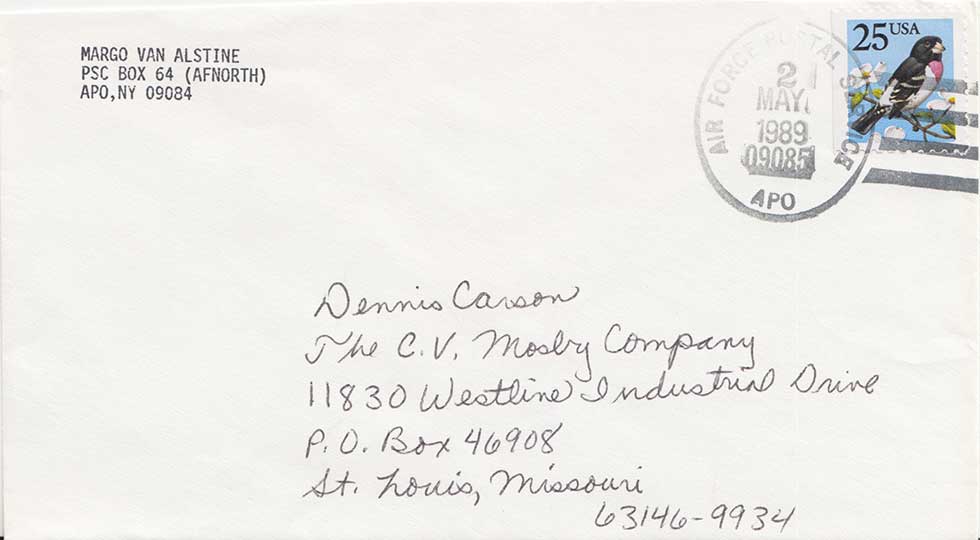 MARGO VAN ALSTINE
PSC BOX 64 (AFNORTH)
APO,NY 09084
AIR FORCE POSTAL SERVICE
2
MAY
1989
09085
APO
25 USA
Dennis Carson
The C.V. Mosby Company
11830 Westline Industrial Drive
P.O. Box 46908
St. Louis, Missouri
63146-9934